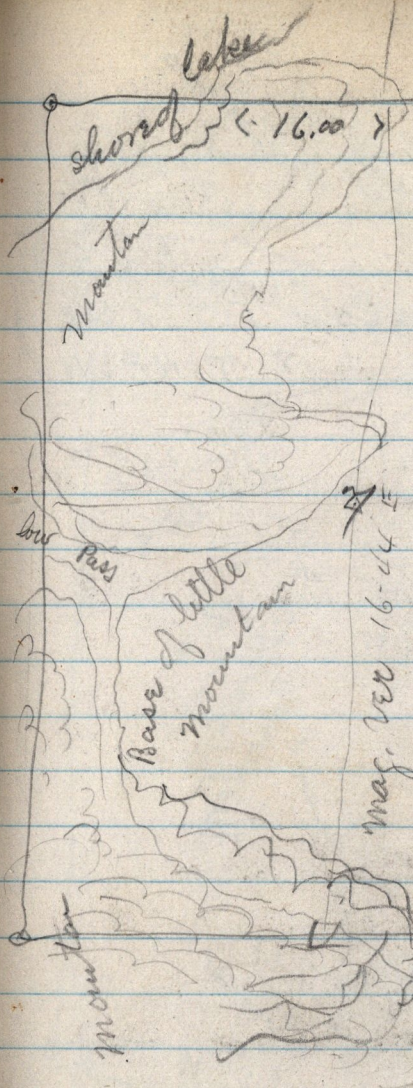 shore of lake
< 16.00 >
Mountain
low Pass
Base of little
mountain
Mag. Ver 16-44 E
Mountan